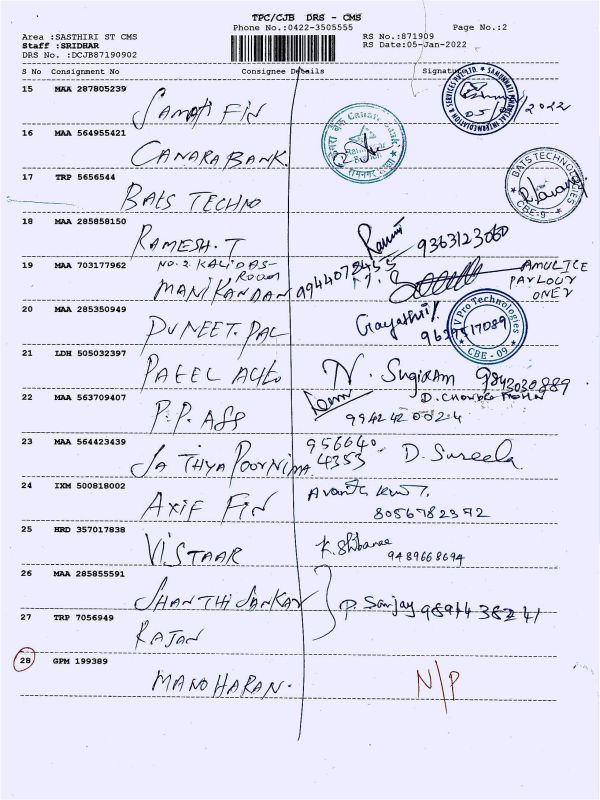 TPC/CJB DRS - CMS
Phone No.:0422-3505555 Page No.:2
Area :SASTHIRI ST CMS RS No.:871909
Staff :SRIDHAR RS Date:05-Jan-2022
DRS No. :DCJB87190902
S No Consignment No Consignee Details Signature
15 MAA 287805239
FIN
16 MAA 564955421
CANARA BANK.
17 TRP 5656544
BATS TECHNO
BATS TECHNOLOGIES
CBE-9
18 MAA 285858150
RAMESH.T
9363123060
19 MAA 703177962
NO.2. KALIDAS-
ROOM
MANIKANDAN 9944072455
PARLOUR
20 MAA 285350949
PUNEET.PAL
Gayathri
V Pro Technologies
CBE - 09
21 LDH 505032397
PATEL AUTO N. Sugiram 9843030889
22 MAA 563709407
P.P. ASS
9942420024
23 MAA 564423439
SATHYA POORNIMA 956640
4353 D. Suseela
24 IXM 500818002
AXIF FIN
8056782372
25 HRD 357017838
VISTAAR
9489668694
26 MAA 285855591
SHANTHI SANKAR
P. Sanjay
27 TRP 7056949
RAJAN
28 GPM 199389
MANOHARAN.
N/P